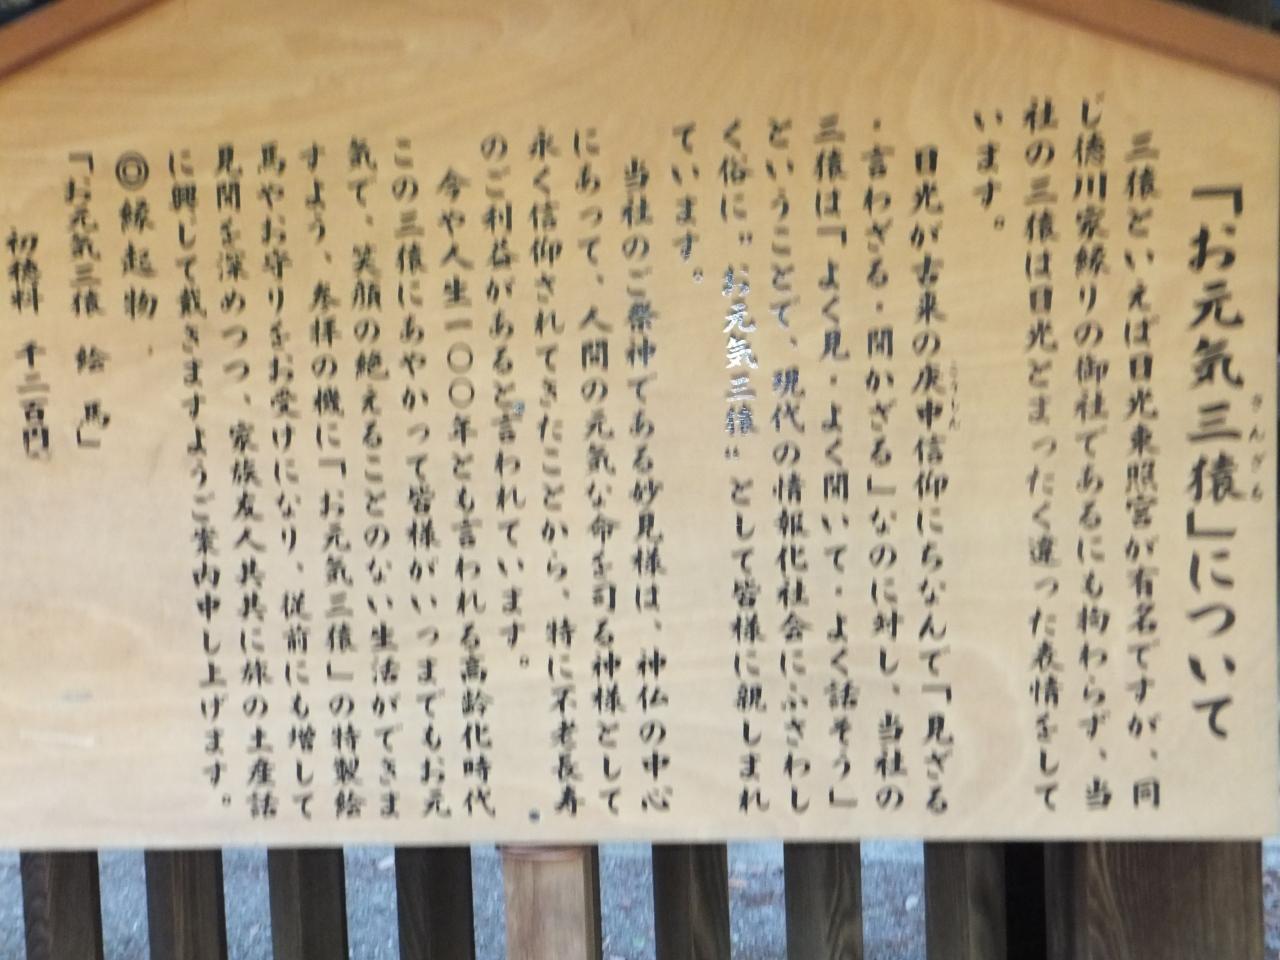 「お元気三猿」について
さんざる
三猿といえば日光東照宮が有名ですが、同
じ徳川家縁りの御社であるにも拘わらず、当
社の三猿は日光とまったく違った表情をして
います。
日光が古来の庚申信仰にちなんで「見ざる
こうしん
・言わざる・聞かざる」なのに対し、当社の
三猿は「よく見・よく聞いて・よく話そう」
ということで、現代の情報化社会にふさわし
く俗に“お元気三猿”として皆様に親しまれ
ています。
当社のご祭神である妙見様は、神仏の中心
にあって、人間の元気な命を司る神様として
永く信仰されてきたことから、特に不老長寿
のご利益があると言われています。
今や人生一〇〇年とも言われる高齢化時代
この三猿にあやかって皆様がいつまでもお元
気で、笑顔の絶えることのない生活ができま
すよう、参拝の機に「お元気三猿」の特製絵
馬やお守りをお受けになり、従前にも増して
見聞を深めつつ、家族友人共共に旅の土産話
に興して戴きますようご案内申し上げます。
◎縁起物
「お元気三猿 絵 馬」
初穂料 千二百円